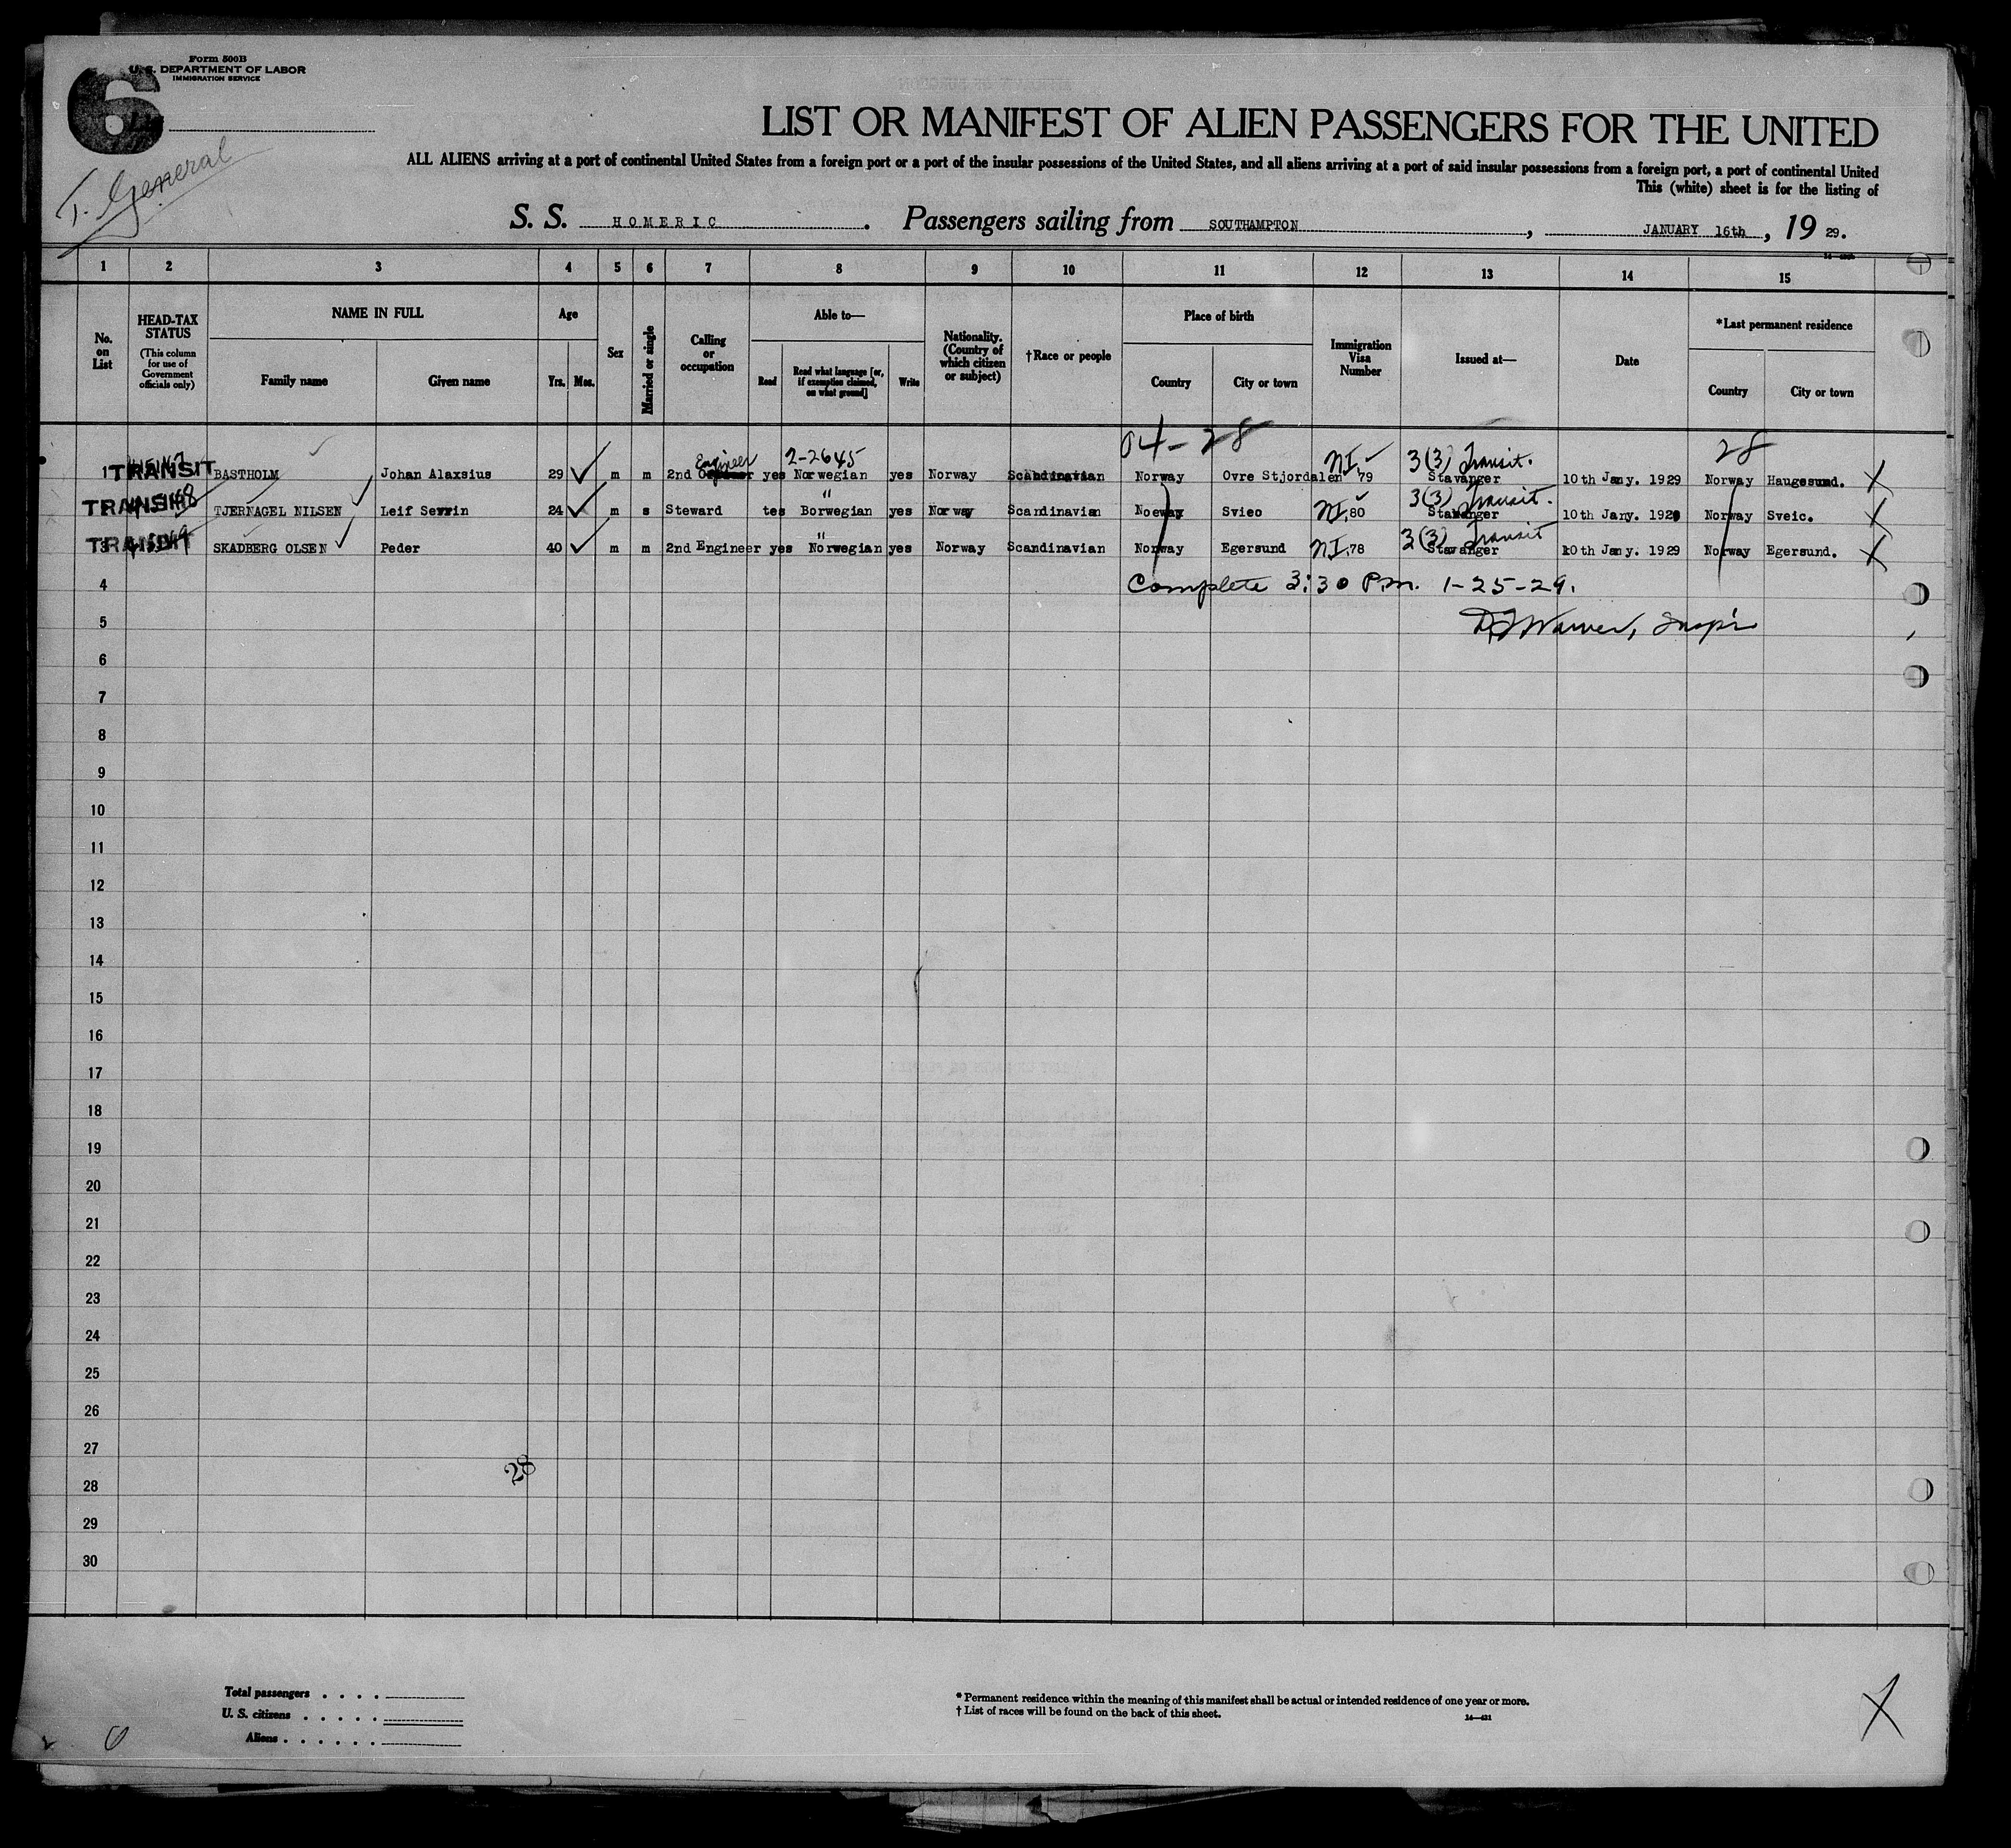 Form 500B
U. S. DEPARTMENT OF LABOR
IMMIGRATION SERVICE
6
T. General
LIST OR MANIFEST OF ALIEN PASSENGERS FOR THE UNITED
ALL ALIENS arriving at a port of continental United States from a foreign port or a port of the insular possessions of the United States, and all aliens arriving at a port of said insular possessions from a foreign port, a port of continental United
This (white) sheet is for the listing of
S. S. HOMERIC. Passengers sailing from SOUTHAMPTON, JANUARY 16th, 19 29.
1 2 3 4 5 6 7 8 9 10 11 12 13 14 15
No. on List
HEAD-TAX STATUS (This column for use of Government officials only)
NAME IN FULL
Family name Given name
Age
Yrs. Mos.
Sex
Married or single
Calling or occupation
Able to—
Read Read what language [or, if exemption claimed, on what ground] Write
Nationality. (Country of which citizen or subject)
†Race or people
Place of birth
Country City or town
Immigration Visa Number
Issued at—
Date
*Last permanent residence
Country City or town
04-28 28
Engineer 2-2645 NI 3(3) Transit.
1 TRANSIT BASTHOLM Johan Alaxsius 29 m m 2nd yes Norwegian yes Norway Scandinavian Norway Ovre Stjordalen 79 Stavanger 10th Jany. 1929 Norway Haugesund. X
" 3(3) Transit.
TRANSIT TJERNAGEL NILSEN Leif Sevrin 24 m s Steward tes Borwegian yes Norway Scandinavian Noeway Svieo NI.80 Stavanger 10th Jany. 1929 Norway Sveic. X
" 3(3) Transit
3 TRANSIT SKADBERG OLSEN Peder 40 m m 2nd Engineer yes Norwegian yes Norway Scandinavian Norway Egersund NI.78 Stavanger 10th Jany. 1929 Norway Egersund. X
4 Complete 3:30 P.m. 1-25-29.
5 Warner, Insp'r
6
7
8
9
10
11
12
13
14
15
16
17
18
19
20
21
22
23
24
25
26
27
28
28
29
30
Total passengers . . . .
U. S. citizens . . . . .
Aliens . . . . . .
* Permanent residence within the meaning of this manifest shall be actual or intended residence of one year or more.
† List of races will be found on the back of this sheet.
14—421
X